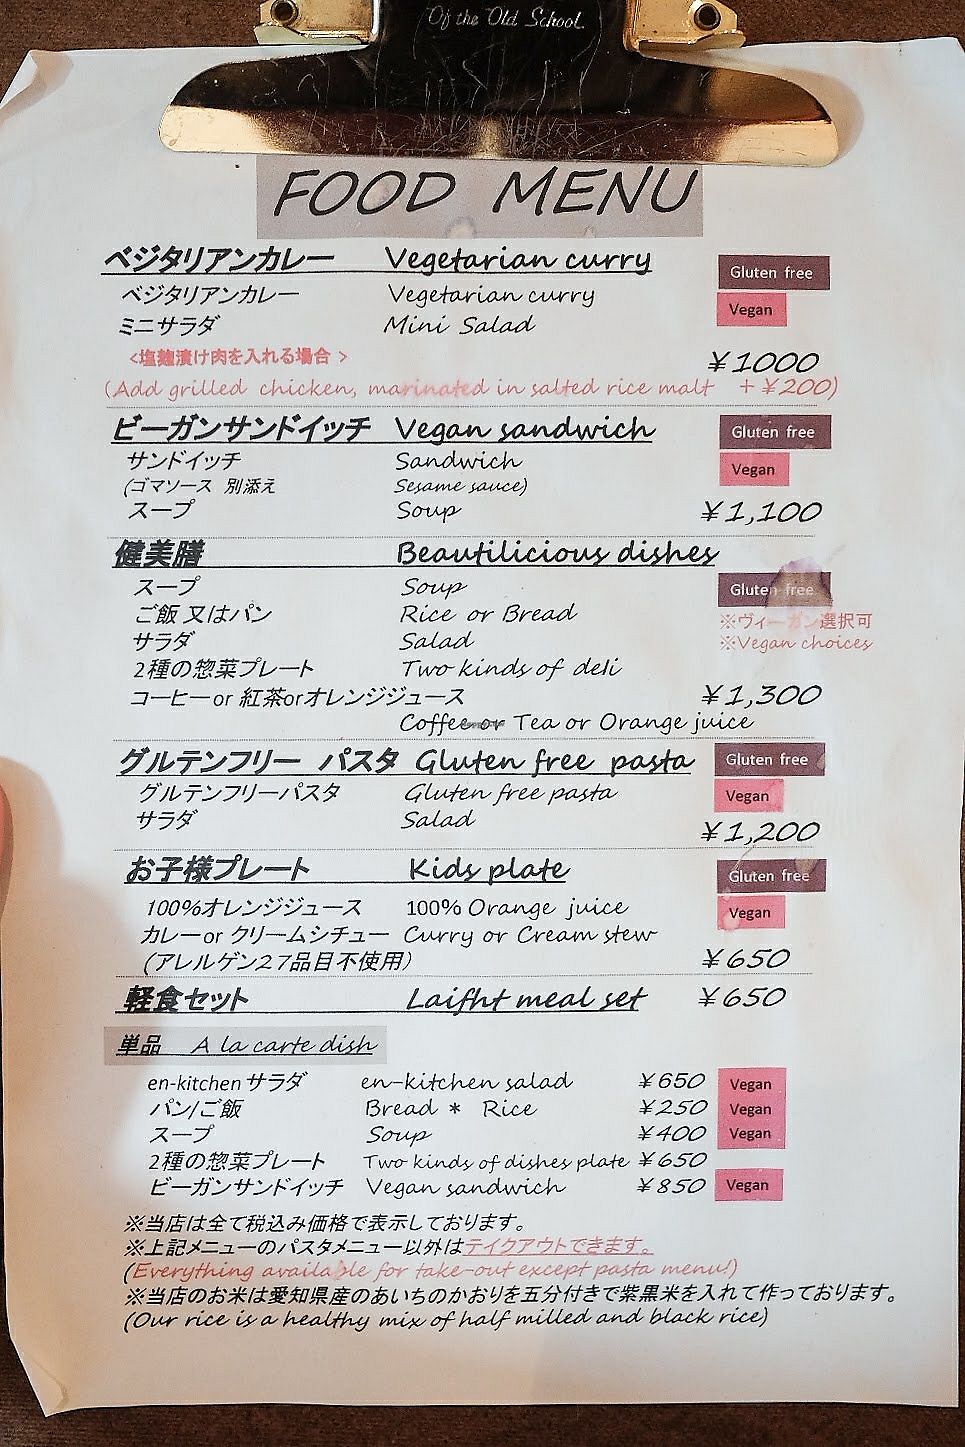 Of the Old School.
FOOD MENU
ベジタリアンカレー Vegetarian curry Gluten free
ベジタリアンカレー Vegetarian curry Vegan
ミニサラダ Mini Salad
<塩麹漬け肉を入れる場合 > ¥1000
(Add grilled chicken, marinated in salted rice malt +¥200)
ビーガンサンドイッチ Vegan sandwich Gluten free
サンドイッチ Sandwich Vegan
(ゴマソース 別添え Sesame sauce)
スープ Soup ¥1,100
健美膳 Beautilicious dishes
スープ Soup Gluten free
ご飯 又はパン Rice or Bread ※ヴィーガン選択可
サラダ Salad ※Vegan choices
2種の惣菜プレート Two kinds of deli
コーヒーor 紅茶orオレンジジュース ¥1,300
Coffee or Tea or Orange juice
グルテンフリー パスタ Gluten free pasta Gluten free
グルテンフリーパスタ Gluten free pasta Vegan
サラダ Salad ¥1,200
お子様プレート Kids plate Gluten free
100%オレンジジュース 100% Orange juice Vegan
カレーor クリームシチュー Curry or Cream stew
(アレルゲン27品目不使用) ¥650
軽食セット Laifht meal set ¥650
単品 A la carte dish
en-kitchen サラダ en-kitchen salad ¥650 Vegan
パン/ご飯 Bread * Rice ¥250 Vegan
スープ Soup ¥400 Vegan
2種の惣菜プレート Two kinds of dishes plate ¥650
ビーガンサンドイッチ Vegan sandwich ¥850 Vegan
※当店は全て税込み価格で表示しております。
※上記メニューのパスタメニュー以外はテイクアウトできます。
(Everything available for take-out except pasta menu!)
※当店のお米は愛知県産のあいちのかおりを五分付きで紫黒米を入れて作っております。
(Our rice is a healthy mix of half milled and black rice)